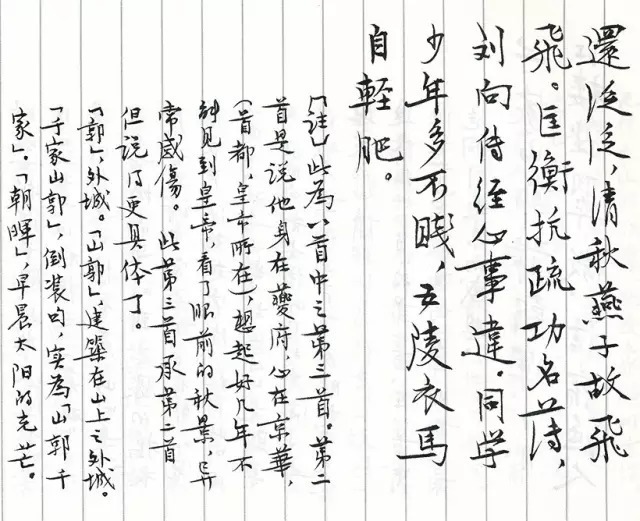 還泛泛，清秋燕子故飛
飛。匡衡抗疏功名薄，
刘向传经心事違。同学
少年多不賤，五陵衣馬
自輕肥。
「註」此為八首中之第三首。第二
首是说他身在夔府，心在京華，
（首都，皇帝所在），想起好几年不
能见到皇帝，看了眼前的秋景，异
常感傷。此第三首承第二首
但说得更具体了。
「郭」，外城。「山郭」，建築在山上之外城。
「千家山郭」，倒装句，实為「山郭千
家」。「朝暉」，早晨太阳的光芒。